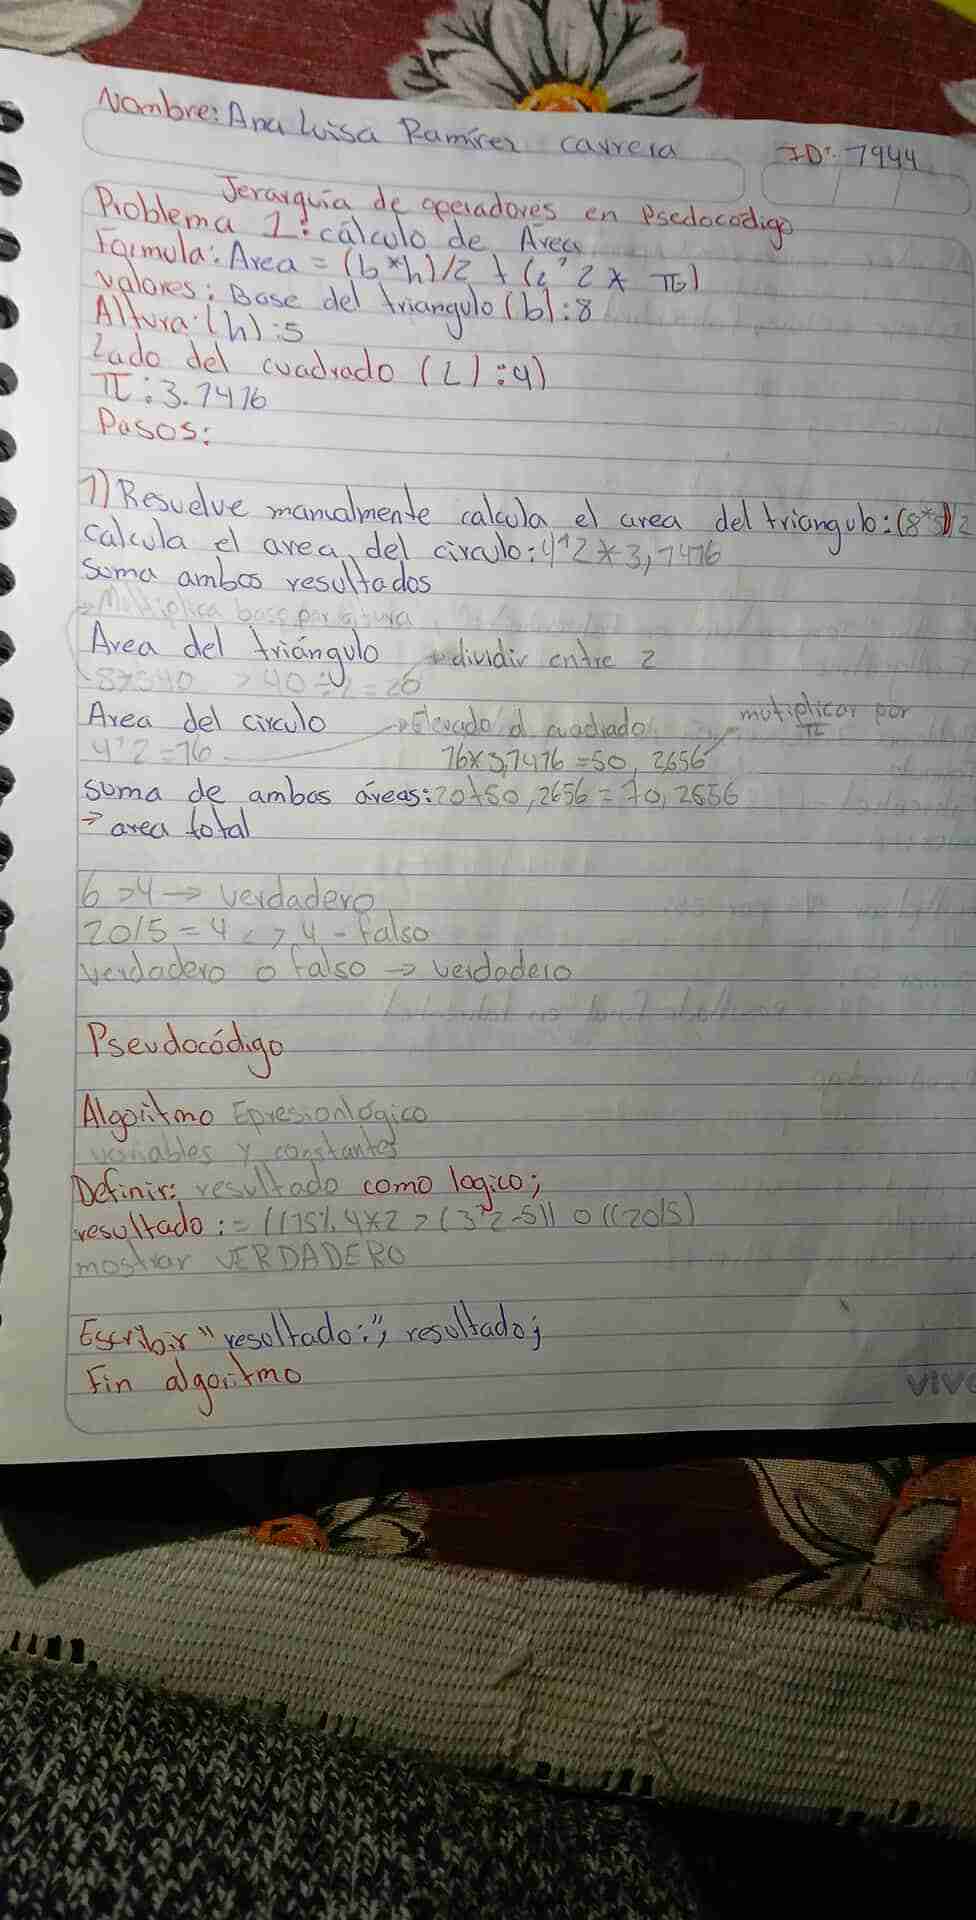 Nombre: Ana Luisa Ramírez Carrera ID: 1944
Jerarquía de operadores en Psedocodigo
Problema 1: cálculo de Área
Formula: Area = (b*h)/2 + (L^2 * π)
valores: Base del triangulo (b): 8
Altura: (h): 5
Lado del cuadrado (L): 4)
π: 3.1416
Pasos:
1) Resuelve manualmente calcula el area del triangulo: (8*5)/2
calcula el area del circulo: 4^2 * 3,1416
suma ambos resultados
→ Multiplica base por altura
Area del triángulo → dividir entre 2
8x5=40 > 40÷2=20
Area del circulo → Elevado al cuadrado mutiplicar por π
4^2=16 16x3,1416=50,2656
suma de ambos áreas: 20+50,2656=70,2656
→ area total
6>4 → verdadero
20/5=4 <> 4 - falso
verdadero o falso → verdadero
Pseudocódigo
Algoritmo Epresionlógico
variables y constantes
Definir: resultado como logico;
resultado := ((15%4*2 > (3^2-5)) o ((20/5)
mostrar VERDADERO
Escribir "resultado:", resultado;
Fin algoritmo